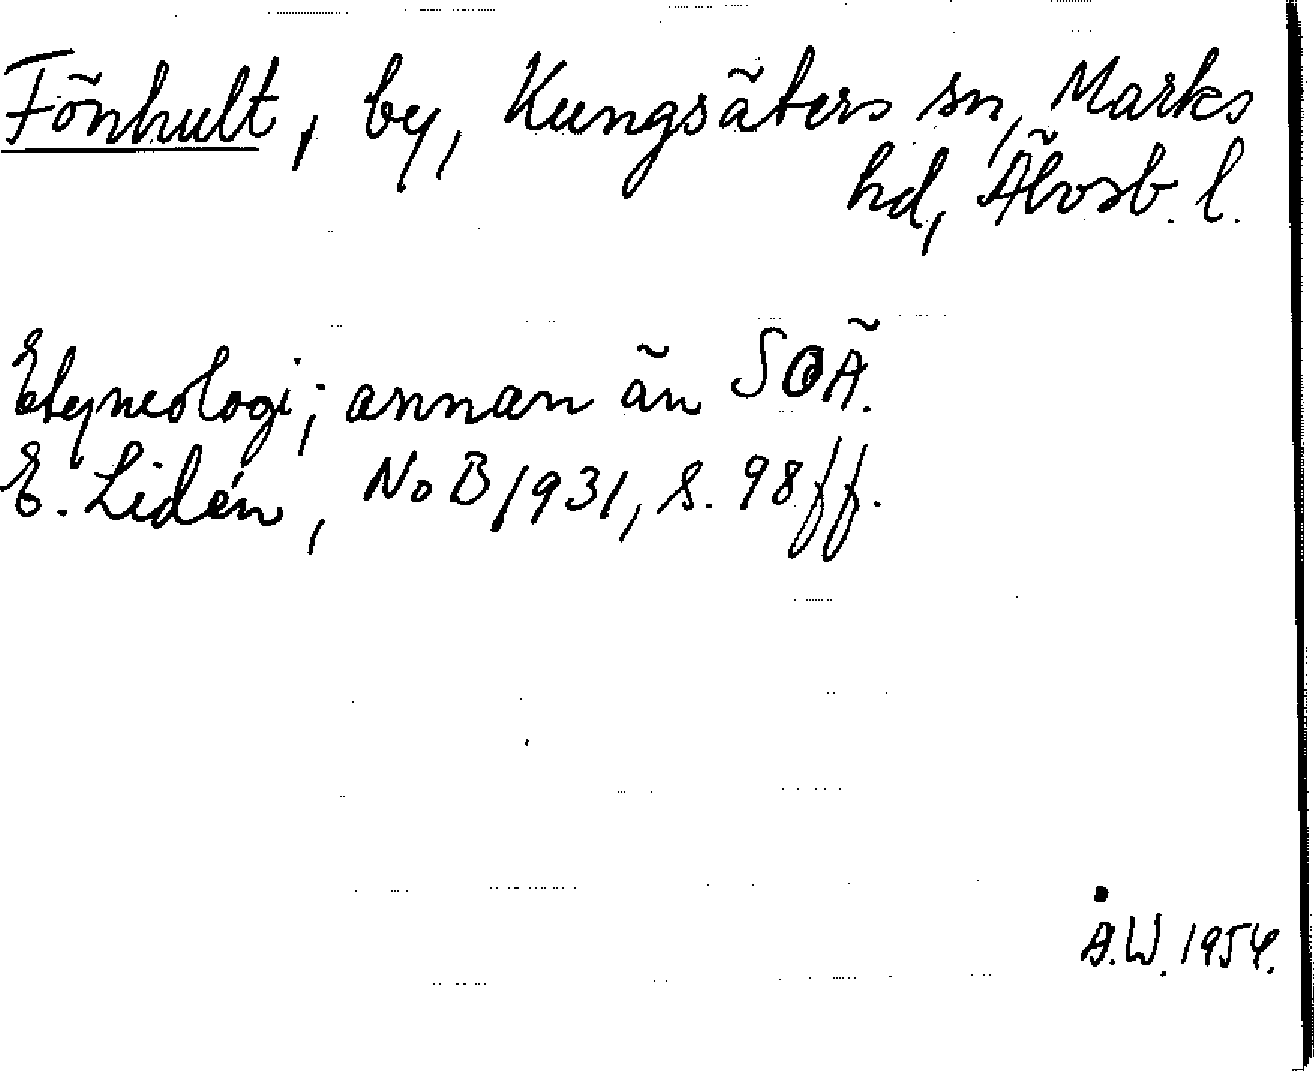 Fönhult, by, Kungsäters sn, Marks
hd, Älvsb. l.
Etymologi; annan än SOÄ.
E. Lidén, NoB 1931, s. 98 ff.
Å.W. 1954.